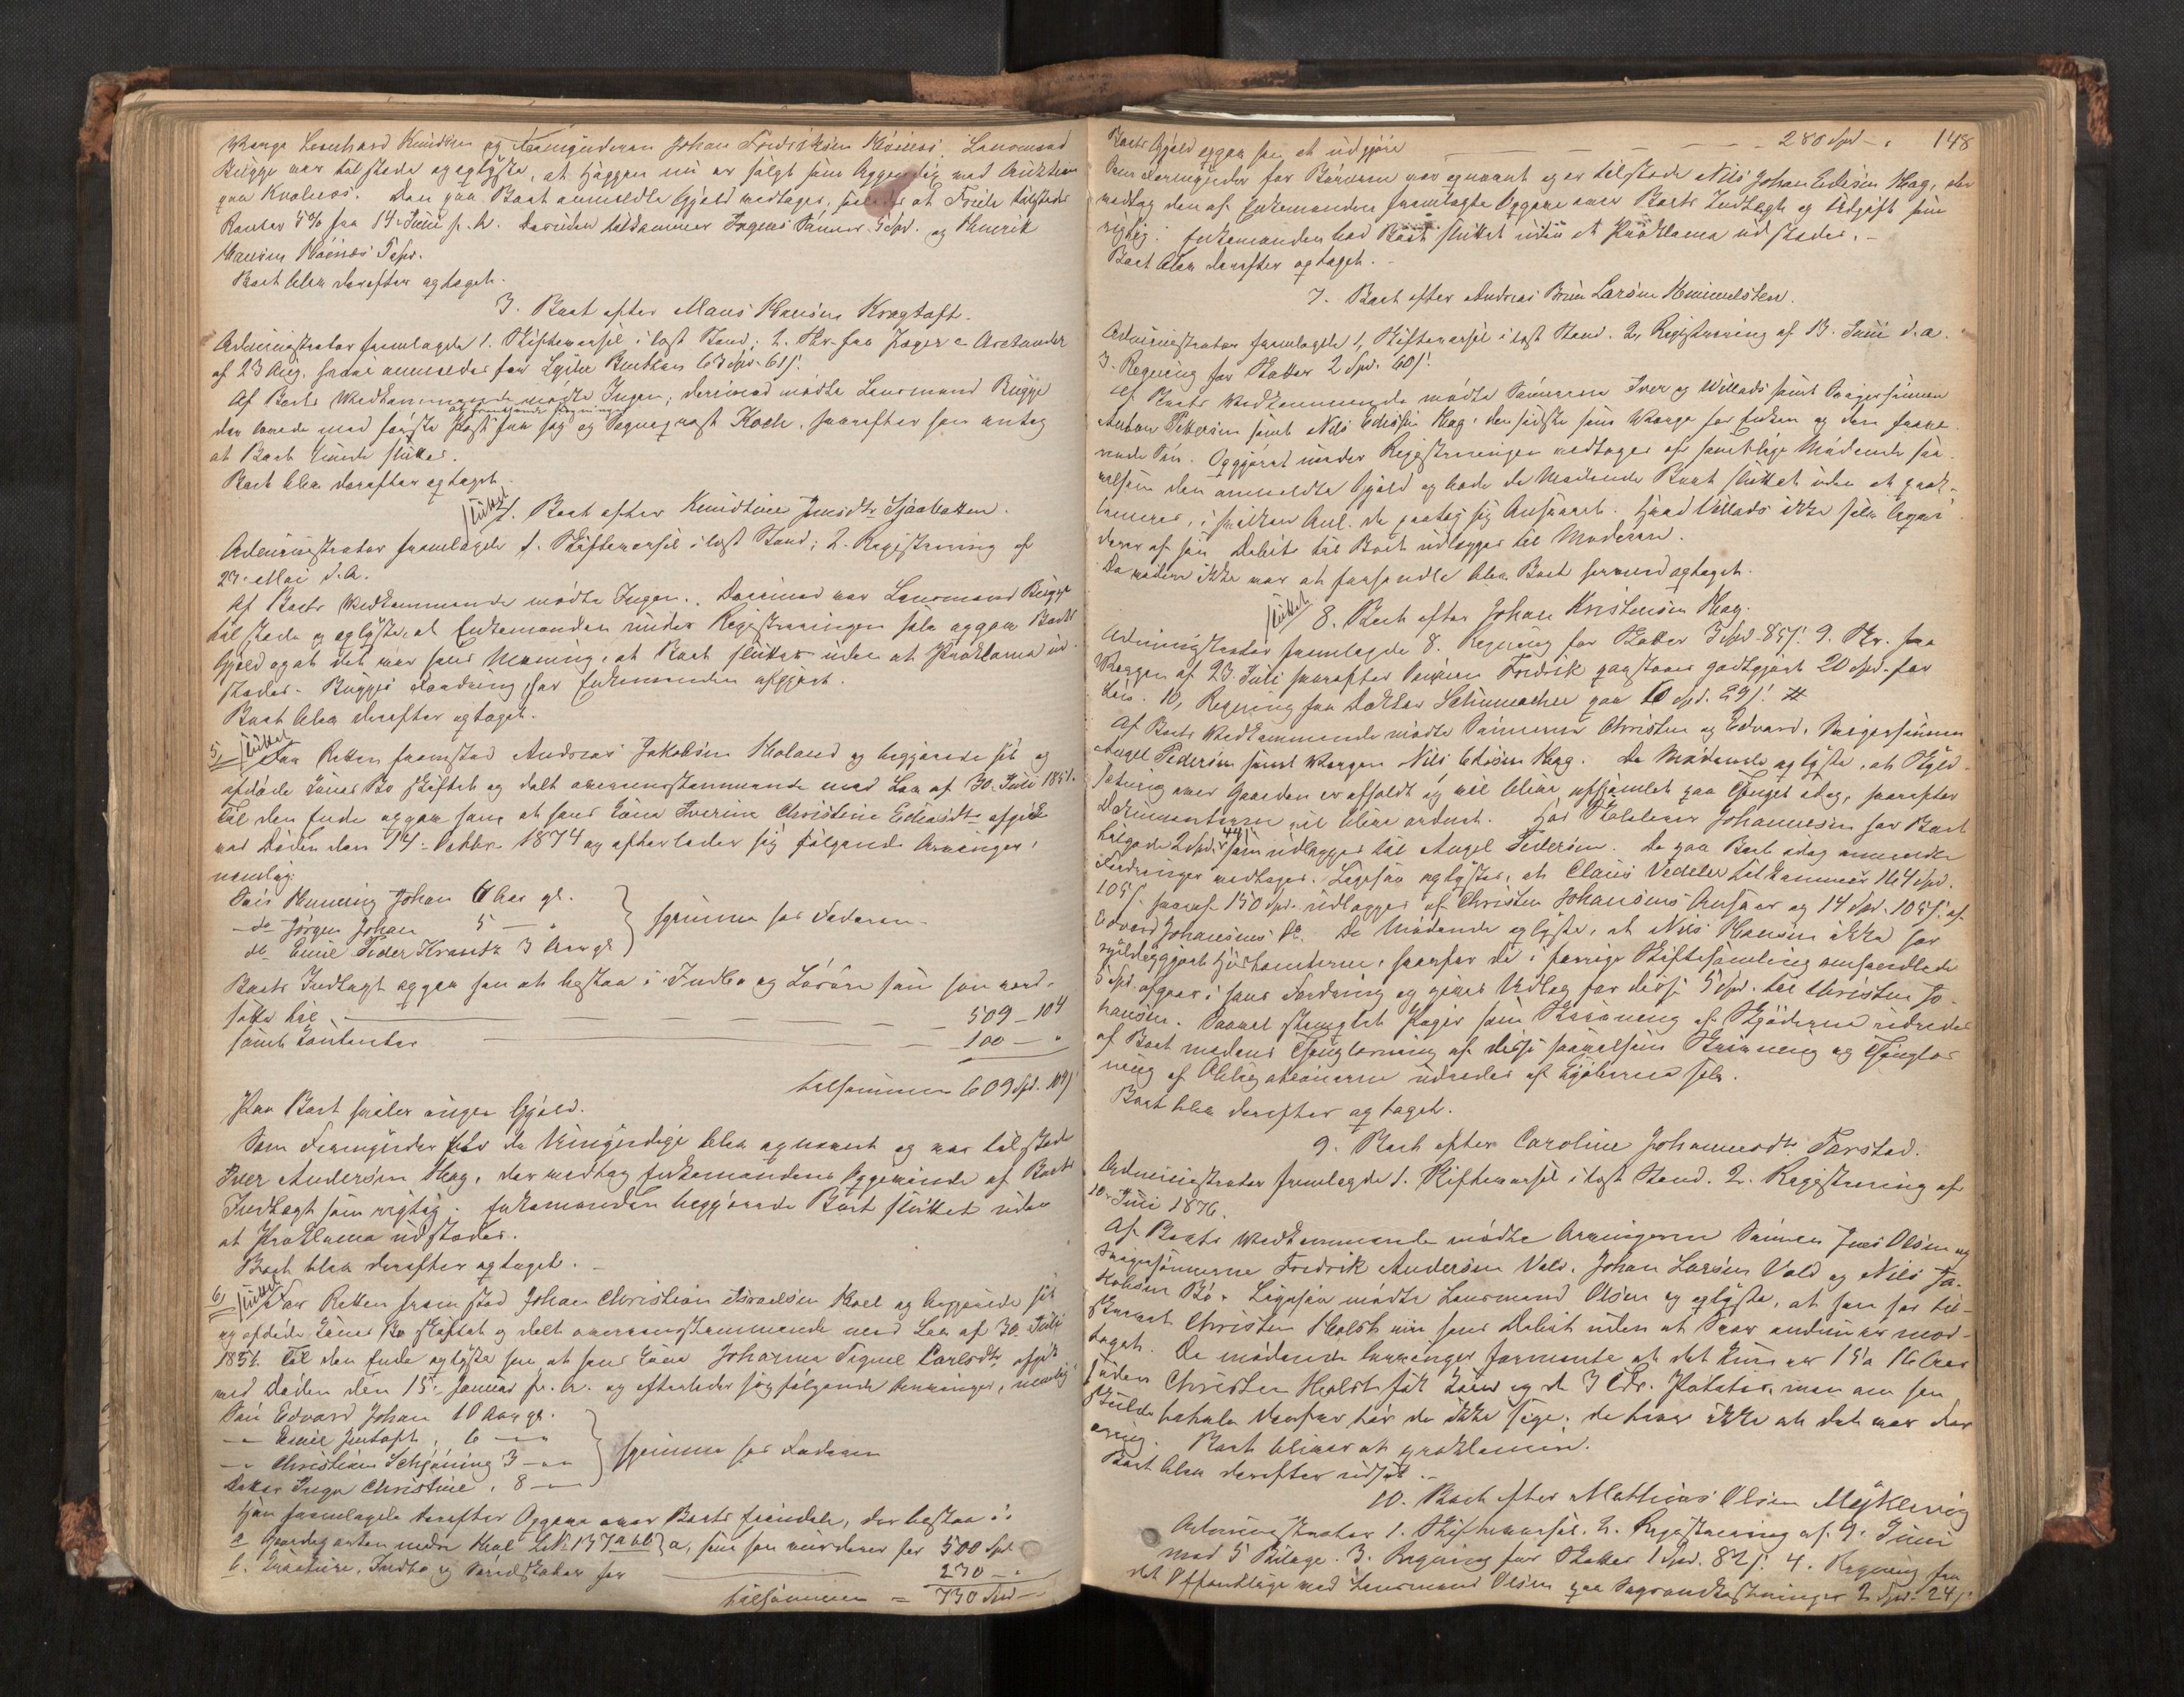 Værge Leonhard Knudsen og Formynderen Johan Fredriksen Lensmand
Brygge var tilstede og oplyste, at Huggen nu er solgt som ved Auktion
paa Kvalnes. Den paa Boet anmeldte Gjæld vedtages, saaledes at
Renter 5% fra 14 Juni f. A. Desuden tilkommer Sønner 5 Spd. og Henrik
Hansen 5 Spd.
Boet blev derefter optaget.
3. Boet efter Maus Hansen Kragtoft.
Administrator fremlagde 1. Skiftevarsel i læst Stand; 2. Skr. fra Jæger & Arctander
af 23 Aug. hvori anmeldes for Lyder Berthsen 63 Spd. 61 s.
Af Boets Vedkommende mødte Ingen, derimod mødte Lensmand Brygge
der med første Post saa sig og Sogneprest Koch, hvorefter han antog
at Boet kunde sluttes.
Boet blev derefter optaget.
sluttet
4. Boet efter Knudtine Jensdtr
Administrator fremlagde 1. Skiftevarsel i læst Stand; 2. Registrering af
23 Mai d. A.
Af Boets Vedkommende mødte Ingen. Derimod var Lensmand Brygge
tilstede og oplyste, at Enkemanden under Registreringen selv opgav Boets
Gjæld og at det var hans Mening, at Boet sluttes uden at Proklama ud-
stedes. Brygges Fordring har Enkemanden afgjort.
Boet blev derefter optaget.
5, sluttet
For Retten fremstod Andreas Jakobsen Holand og begjærede sit og
afdøde Kones Bo skiftet og delt overensstemmende med Lov af 30. Juli 1851.
Til den Ende opgav han, at hans Kone Iverine Christine Ediasdtr afgik
ved Døden den 14. Oktbr. 1874 og efterlader sig følgende Arvinger,
nemlig:
Søn Henning Johan 6 Aar gl.
do Jørgen Johan 5 — "
do Emil Peder Krantz 3 Aar gl.
hjemme hos Faderen.
Boets Indtægt opgav han at bestaa i Indbo og Løsøre som han vær-
satte til — 509 – 104
samt Kontanter — 100 – "
tilsammen 609 Spd. 104 s
Paa Boet hviler ingen Gjæld.
Som Formynder for de Umyndige blev opnævnt og var tilstede
Iver Andersen Hag, der vedtog Enkemandens Opgivende af Boets
Indtægt som rigtig. Enkemanden begjærede Boet sluttet uden
at Proklama udstedes.
Boet blev derefter optaget.
6, sluttet
For Retten fremstod Johan Christian Israelsen Hoel og begjærede sit
og afdøde Kones Bo skiftet og delt overensstemmende med Lov af 30. Juli
1851. Til den Ende oplyste han at hans Kone Johanna Carlsdtr afgik
ved Døden den 15. Januar f. A. og efterlader sig følgende Arvinger, nemlig
Søn Edvard Johan 10 Aar gl.
— Emil 6 — "
— Christian Schjøning 3 — "
Datter Inga Christine, 8 — "
hjemme hos Faderen
Han fremlagde derefter Opgave over Boets Eiendele, der bestaa i:
a Gaardparten nedre Hoel LNo 137 a, som han vurderer for 500 Spd
b. Kreature, Indbo og Søredskaber for 230 — "
tilsammen = 730 Spd —
148
Boets Gjæld opgav han at udgjøre — 280 Spd – "
Som Formynder for Børnene var opnævnt og er tilstede Nils Johan Edisen Hag, der
vedtog den af Enkemanden fremlagte Opgave over Boets Indtægt og Udgift som
rigtig. Enkemanden bad Boet sluttet uden at Proklama udstedes. –
Boet blev derefter optaget. –
7. Boet efter Andreas Brun Larsen Hemmelsteen.
Administrator fremlagde 1, Skiftevarsel i læst Stand. 2, Registrering af 13. Juni d. a.
3. Regning for Skatter 2 Spd. 60 s.
Af Boets Vedkommende mødte Sønnerne Iver og Villads samt Svigersønnen
Anton Pettersen samt Nils Edissen Hag, den sidste som Værge for Enken og den fravæ-
rende Søn. Opgjøret under Registreringen vedtoges af samtlige Mødende saa-
velsom den anmeldte Gjæld og bade de Mødende Boet sluttet uden at prok-
lameres, i hvilken Anl. de paatog sig Ansvaret. Hvad Villads ikke selv
derer af sin Debet til Boet udlægges til Moderen.
Da videre ikke var at forhandle blev Boet herved optaget.
sluttet
8. Boet efter Johan Kristensen Hag.
Administrator fremlagde 8. Regning for Skatter 3 Spd. 85 s. 9. Skr. fra
Værgen af 23. Juli hvorefter Sønnen Fredrik paastaaes godtgjort 20 Spd. for
10, Regning fra Doktor Schumacher paa 10 Spd. 29 s. #
Af Boets Vedkommende mødte Sønnerne Christen og Edvard, Svigersønnen
Angel Pedersen samt Værgen Nils Edisen Hag. De Mødende oplyste, at Skyld-
sætning over Gaarden er afholdt og vil blive afhjemlet paa Thinget idag, hvorefter
Dokumenterne vil blive ordnet. Hos Johannesen har Boet
tilgode 2 Spd. 44 s som udlægges til Angel Pedersen. De paa Boet idag anmeldte
Fordringer vedtages. Ligesaa oplystes, at Claus Vedeler tilkommer 164 Spd.
105 s. hvoraf 150 Spd. udlægges af Christen Johansens Ansvar og 14 Spd. 105 s. af
Edvard Johansens do. De Mødende oplyste, at Nils Hansen ikke har
hvorfor de i forrige Skiftesamling omhandlede
5 Spd. afgaar i hans Fordring og gives Udlæg for disse 5 Spd. til Christen Jo-
hansen. Saavel stemplet Papir som Skrivning af Skjøderne udredes
af Boet medens Thinglæsning af disse saavelsom Skrivning og Thinglæs-
ning af Obligationerne udredes af Kjøberne selv.
Boet blev derefter optaget.
9. Boet efter Caroline Johannesdtr Farstad.
Administrator fremlagde 1. Skiftevarsel i læst Stand. 2. Registrering af
10. Juni 1876.
Af Boets Vedkommende mødte Arvingerne Sønnen Jens Olsen og
Svigersønnerne Fredrik Andersen Vold, Johan Larsen Vold og Nils Ja-
kobsen Bø. Ligesaa mødte Lensmand Olsen og oplyste, at han har til-
skrevet Christen Holst om hans Debet uden at Svar endnu er mod-
taget. De mødende Arvinger formente at det kun er 15 a 16 Aar
siden Christen Holst fik Koen og de 3 Tdr. Poteter, men om han
skulde betale derfor tør de ikke sige, de tror ikke at det var der
Mening. Boet bliver at proklamere.
Boet blev derefter udsat. –
10. Boet efter Mathias Olsen Myklevig
Administrator 1. Skiftevarsel. 2. Registrering af 9. Juni
med 5 Bilage. 3. Regning for Skatter 1 Spd. 82 s. 4. Regning fra
det Offentlige ved Lensmand Olsen paa Sagsomkostninger 2 Spd. 24 s.